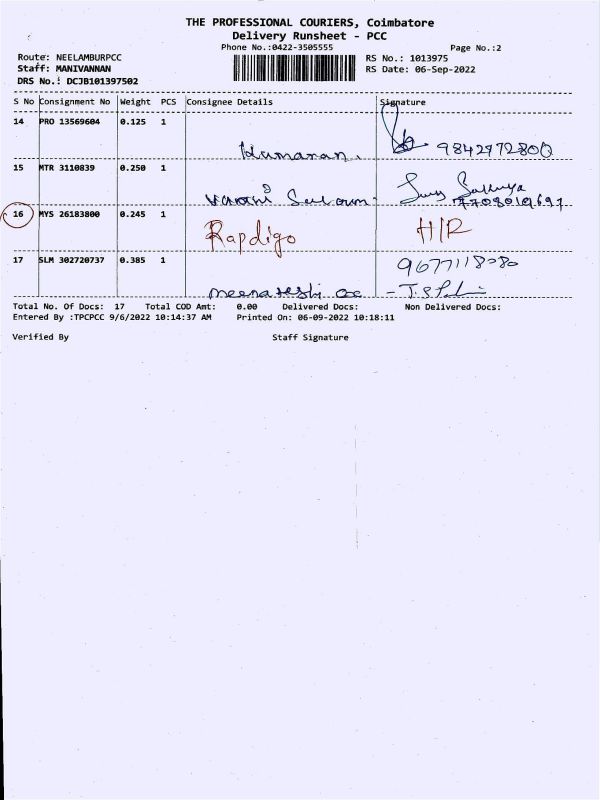 THE PROFESSIONAL COURIERS, Coimbatore
Delivery Runsheet - PCC
Phone No.:0422-3505555 Page No.:2
Route: NEELAMBURPCC RS No.: 1013975
Staff: MANIVANNAN RS Date: 06-Sep-2022
DRS No.: DCJB101397502
S No Consignment No Weight PCS Consignee Details Signature
14 PRO 13569604 0.125 1
Kumaran. 9842972800
15 MTR 3110839 0.250 1
7708019691
16 MYS 26183800 0.245 1 Rapdigo H/R
17 SLM 302720737 0.385 1 9677118080
Total No. Of Docs: 17 Total COD Amt: 0.00 Delivered Docs: Non Delivered Docs:
Entered By :TPCPCC 9/6/2022 10:14:37 AM Printed On: 06-09-2022 10:18:11
Verified By Staff Signature